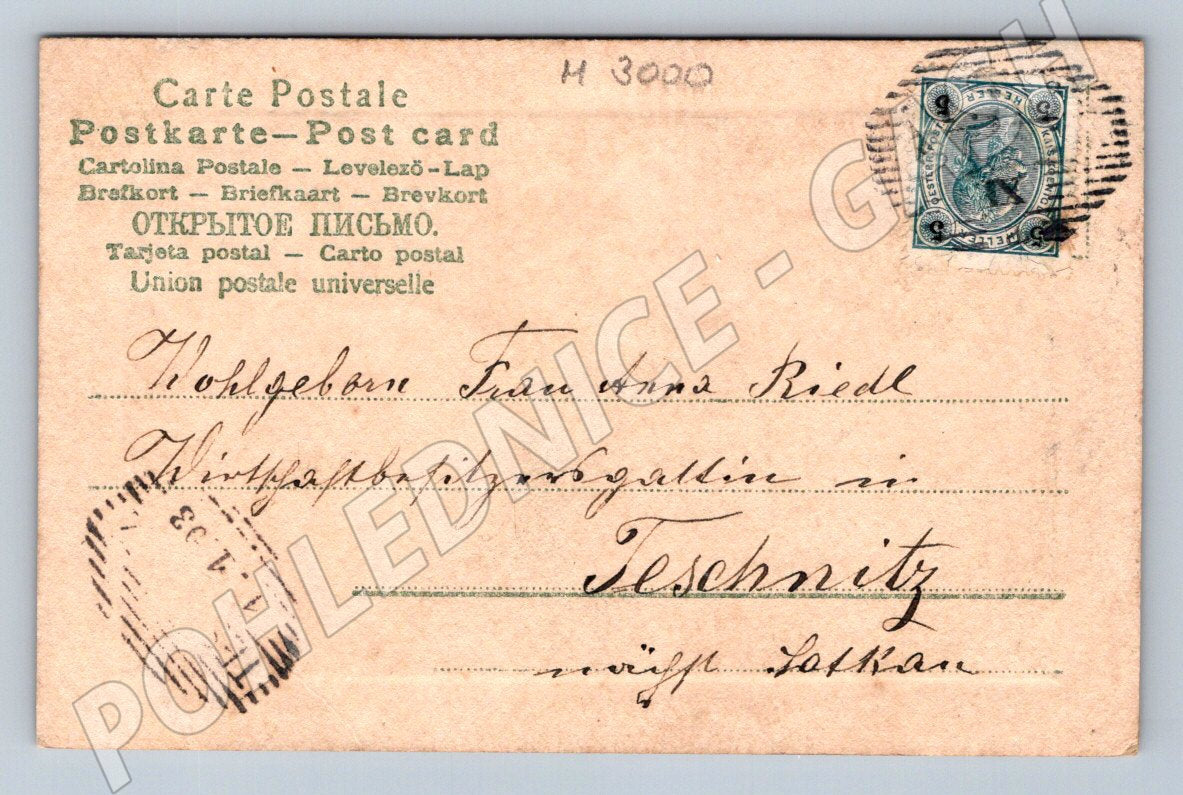 M 3000
Carte Postale
Postkarte — Post card
Cartolina Postale — Levelező-Lap
Brefkort — Briefkaart — Brevkort
ОТКРЫТОЕ ПИСЬМО.
Tarjeta postal — Carto postal
Union postale universelle
5 5
5 5
HELLER
HELLER
IX
Wohlgeborn Frau Anna Riedl
Wirtschaftbesitzersgattin in
Teschnitz
nächst Satkau
1.03
POHLEDNICE - G